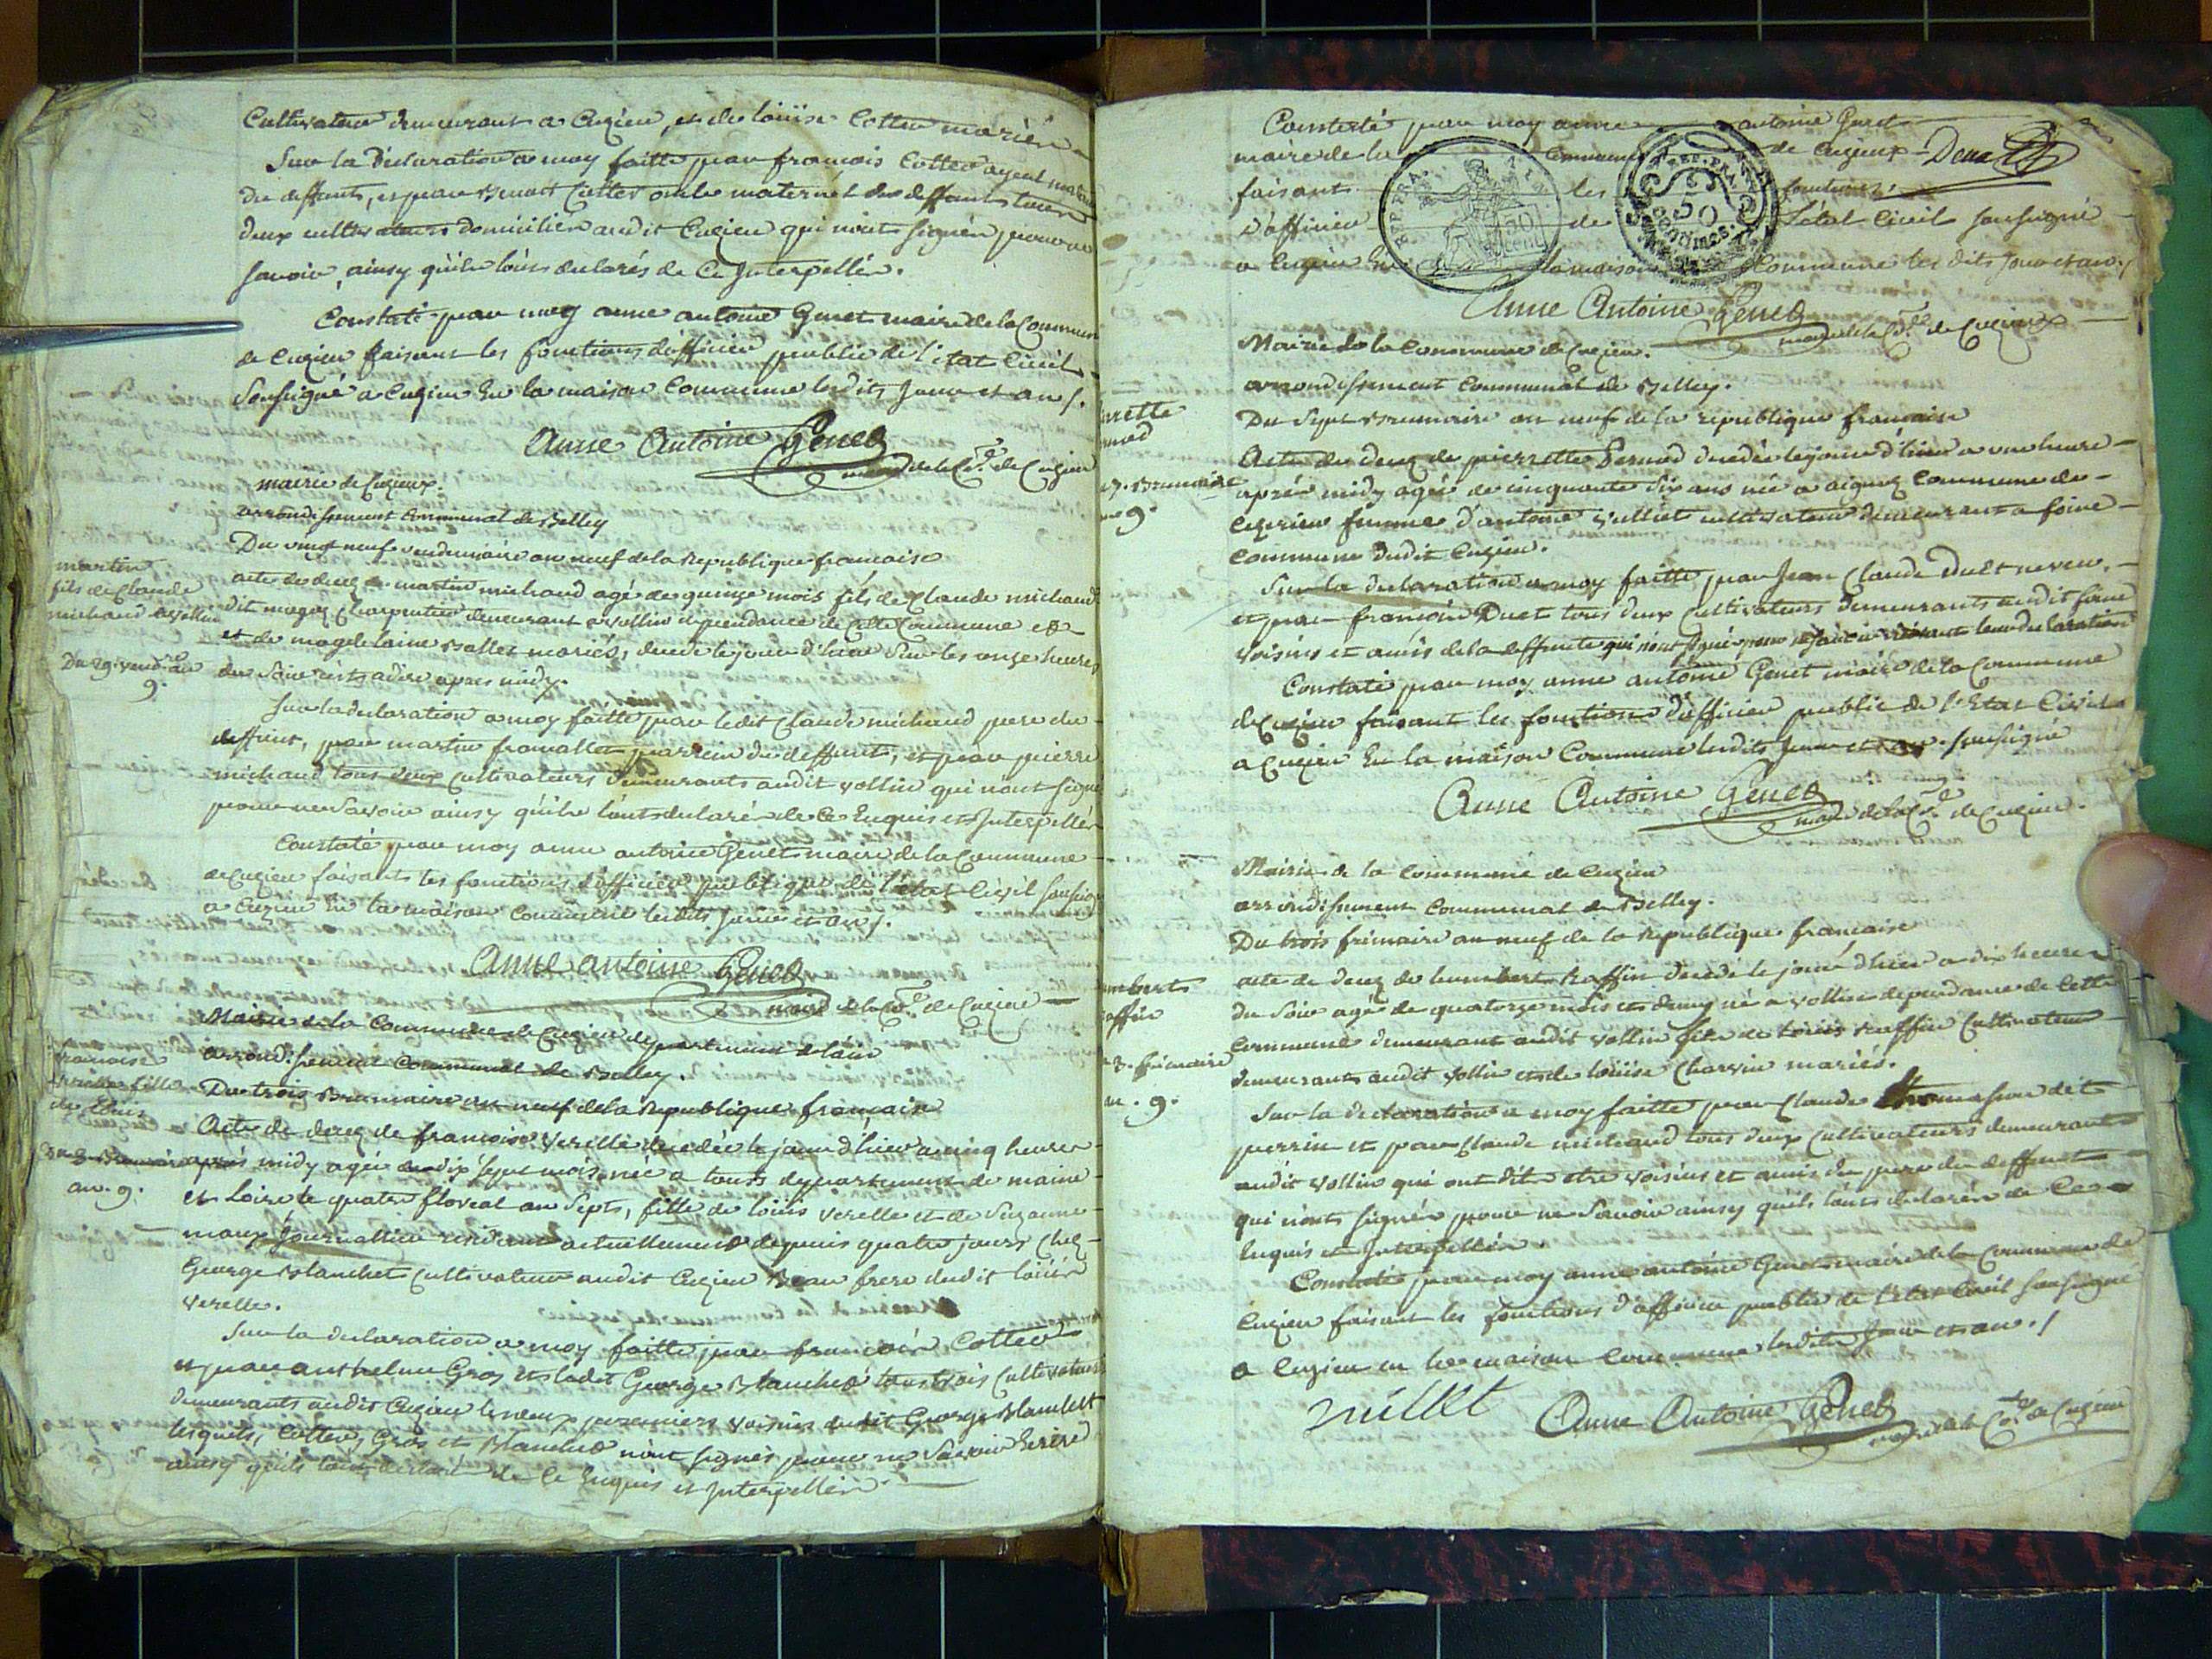 Cultivateur demeurant a Cuzieu, et de loüise Cottin mariés
Sur la déclaration a moy faitte par françois Cotter ayeul mater
du deffunts, et par Benoit Cotter oncle maternel du deffunts tous
deux cultivateurs domiciliés audit Cuzieu qui n'ont signés pour ne
savoir, ainsy quils lòns declarés de Ce Interpellés.
Constaté par moy anne antoine Genet maire de la Commune
de Cuzieu faisant les fonctions d'officier public de l'état Civil
Soussigné a Cuzieu En la maison Commune lesdits Jour et an /.
Anne Antoine Genet
maire de la C.ne de Cuzieu
mairie de Cuzieux.
arrondissement Communal de Belley
Du vingt neuf vendemiaire an neuf de la Republique française
martin
fils de Claude
michaud a vollin
Du 29. vendre. an
9.
acte de decez de martin michaud agé de quinze mois fils de Claude michaud
dit magez Charpentier demeurant a vollin dependance de Cette Commune et
et de magdelaine Ballet mariés, decedé le jour d'hier sur les onze heures
du soir c'est a dire apres midy.
Sur la declaration a moy faitte par ledit Claude michaud pere du
deffunt, par martin framallet parrein du deffunt, et par pierre
michaud tous deux cultivateurs demeurants audit vollin qui n'ont signé
pour ne savoir ainsy quils lònts declarés de Ce Enquis et Interpellés
Constaté par moy anne antoine Genet maire de la Commune
de Cuzieu faisants les fonctions d'officier publique de l'état Civil soussigné
a Cuzieu En la maison Commune lesdits Jour et an /.
Anne antoine Genet
maire de la C.ne de Cuzieu
Mairie de la Commune de Cuzieu departement de lain
arrondissement Communal de Belley.
Du trois Brumaire an neuf de la Republique française
francoise
verelle fille
de Loüis
Du 3. Brumaire
an. 9.
Acte de decez de françoise verelle decedée le jour d'hier a cinq heures
après midy agée de dix sept mois, née a tours departement de maine
et Loire le quatre floreal an Septs, fille de loüis verelle et de Suzanne
maux Journallier residant actuellement depuis quatre jours chez
George Blanchet cultivateur audit Cuzieu Beau frere dudit loüis
verelle.
Sur la declaration a moy faitte par françois Cotter
et par anthelme Gros et ledit George Blanchet tous trois Cultivateurs
demeurants audit Cuzieu les deux premiers voisins dudit George Blanchet
lesquels, Cotter, Gros et Blanchet n'ont signés pour ne savoir Ecrire
ainsy quils lont declaré de Ce Enquis et Interpellés.
Constaté par moy anne antoine Genet
maire de la Commune de Cuzieux Deux
faisant les fonctions
d'officier de l'état Civil soussigné
a Cuzieu En la maison Commune les dits Jour et an /
REP. FRA.
50
cent.
REP. FRA.
50
centimes.
Anne Antoine Genet
maire de la C.ne de Cuzieux
Mairie de la Commune de Cuzieu.
arrondissement Communal de Belley.
Du Sept Brumaire an neuf de la republique francaise
rrette
rnod
7. Brumaire
9.
Acte de decez de pierrette Pernod decedée le jour d'hier a une heure
après midy agée de cinquante six ans née a aignoz Commune de
Ceyzrieu femme d'antoine vulliet cultivateur demeurant a foine
Commune dudit Cuzieu.
Sur la declaration a moy faitte par Jean Claude Duet neveu,
et par françois Duet tous deux Cultivateurs demeurants audit foine
voisins et amis de la deffunte qui n'ont signé pour ne savoir suivant leur declaration
Constaté par moy anne antoine Genet maire de la Commune
de Cuzieu faisant les fonctions d'officier public de l'Etat Civil
a Cuzieu En la maison Commune lesdits Jour et an. soussigné
Anne Antoine Genet
maire de la C.ne de Cuzieu.
Mairie de la Commune de Cuzieu
arrondissement Communal de Belley.
Du trois frimaire an neuf de la Republique francaise
mberts
affin
3. frimaire
an. 9.
acte de decez de humbert Raffin decedé le jour d'hier a dix heures
du soir agé de quatorze mois et demy né a vollin dependance de Cette
Commune demeurant audit vollin fils de loüis Raffin Cultivateur
demeurants audit vollin et de loüise Charvin mariés.
Sur la declaration a moy faitte par Claude thomasson dit
perrin et par Claude michaud tous deux Cultivateurs demeurants
audit vollin qui ont dit etre voisins et amis du pere du deffunt
qui n'onts signés pour ne savoir ainsy quils lonts declarés de Ce
Enquis et Interpellés.
Constaté par moy anne antoine Genet maire de la Commune de
Cuzieu faisant les fonctions d'officier public de l'état Civil soussigné
a Cuzieu en la maison Commune lesdits Jour et an. /
millet
Anne Antoine Genet
maire de la C.ne de Cuzieu